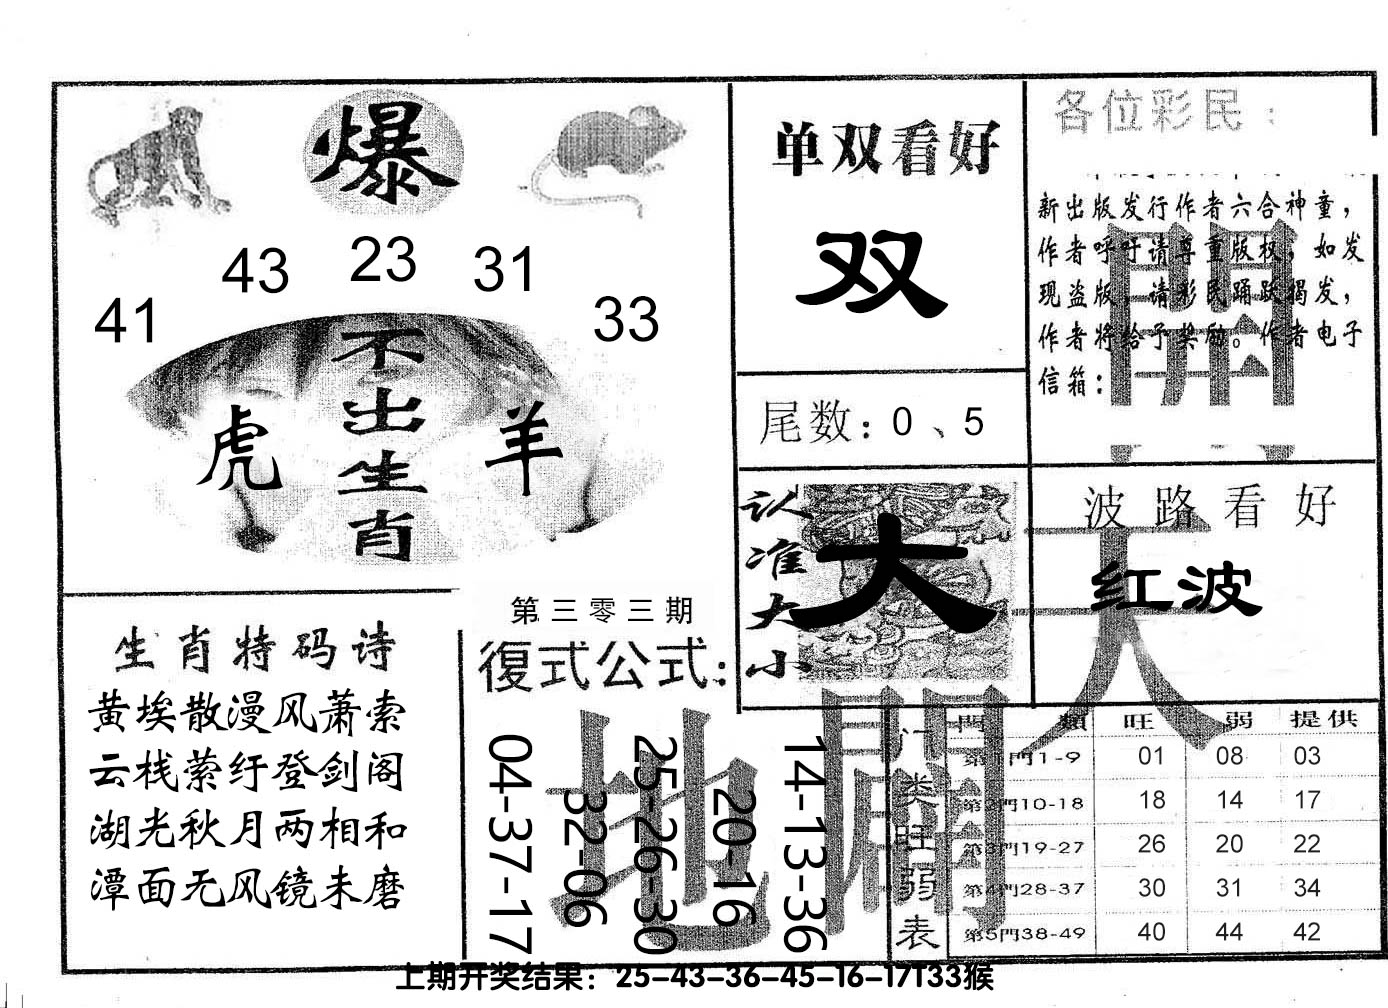 爆
41
43
23
31
33
不出生肖
虎
羊
单双看好
双
尾数：0、5
各位彩民：
新出版发行作者六合神童，
作者呼吁请尊重版权，如发
现盗版，请彩民踊跃揭发，
作者将给予奖励。作者电子
信箱：
開
认准大小
大
波路看好
红波
天
生肖特码诗
黄埃散漫风萧索
云栈萦纡登剑阁
湖光秋月两相和
潭面无风镜未磨
第三零三期
復式公式：
04-37-17
32-06
25-26-30
20-16
14-13-36
地
門类旺弱表
門類 旺 弱 提供
第1門1-9 01 08 03
第2門10-18 18 14 17
第3門19-27 26 20 22
第4門28-37 30 31 34
第5門38-49 40 44 42
上期开奖结果：25-43-36-45-16-17T33猴